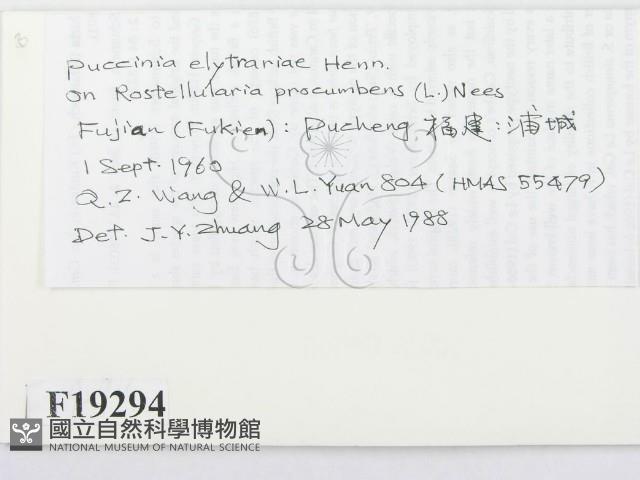 Puccinia elytrariae Henn.
on Rostellularia procumbens (L.) Nees
Fujian (Fukien): Pucheng, 福建:浦城
1 Sept. 1960
Q. Z. Wang & W. L. Yuan 804 (HMAS 55479)
Det. J. Y. Zhuang 28 May 1988
F19294
國立自然科學博物館
NATIONAL MUSEUM OF NATURAL SCIENCE